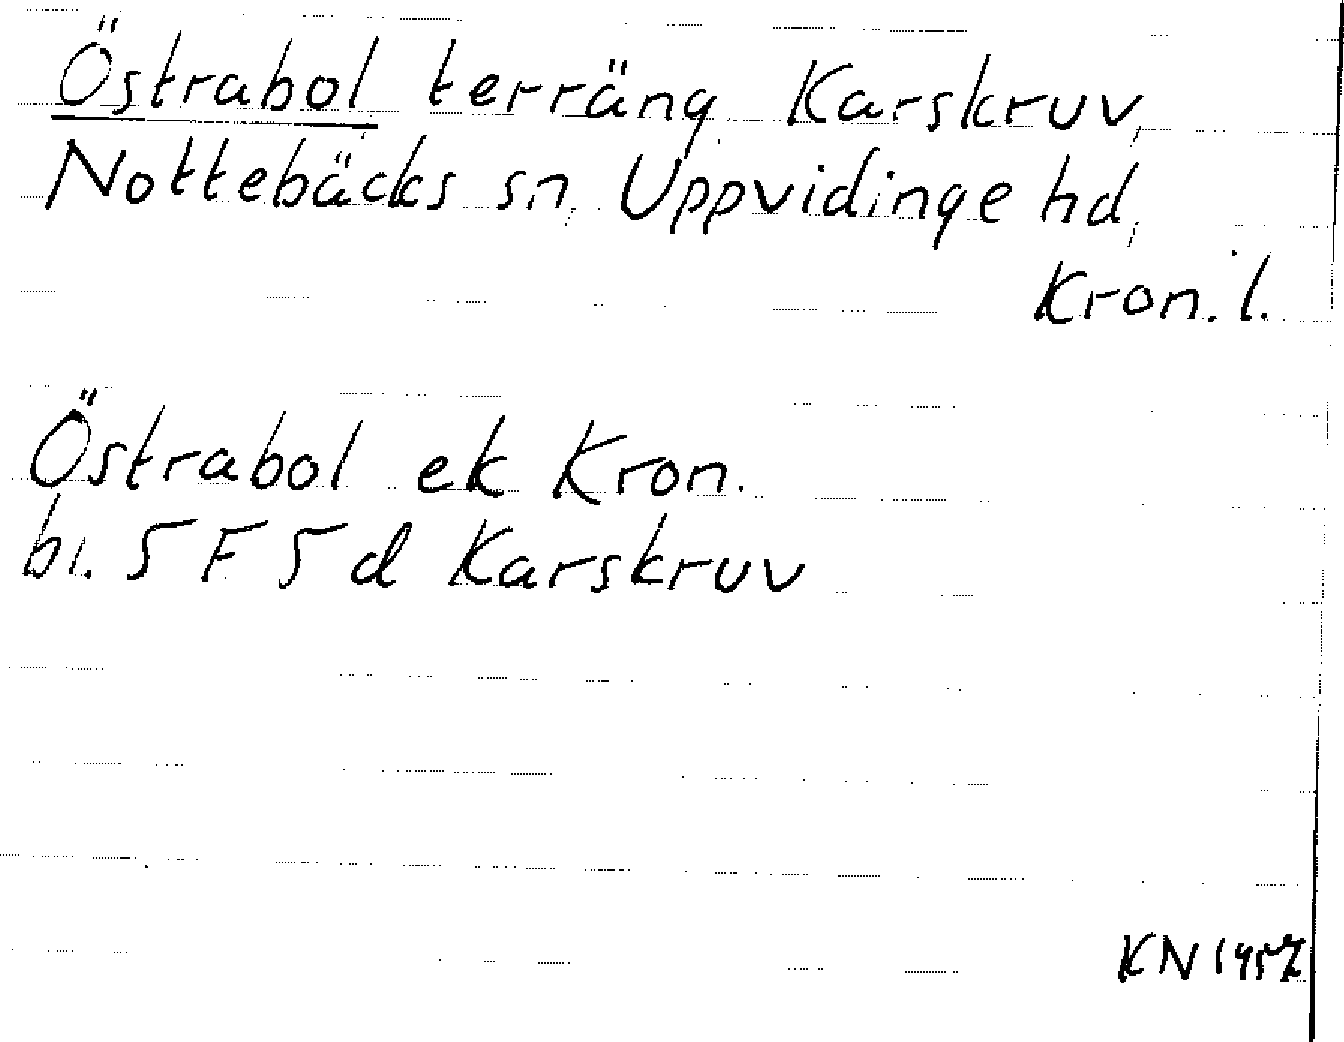 Östrabol terräng Karskruv,
Nottebäcks sn, Uppvidinge hd,
Kron. l.
Östrabol ek Kron.
bl. 5 F 5 d Karskruv
KN 1957